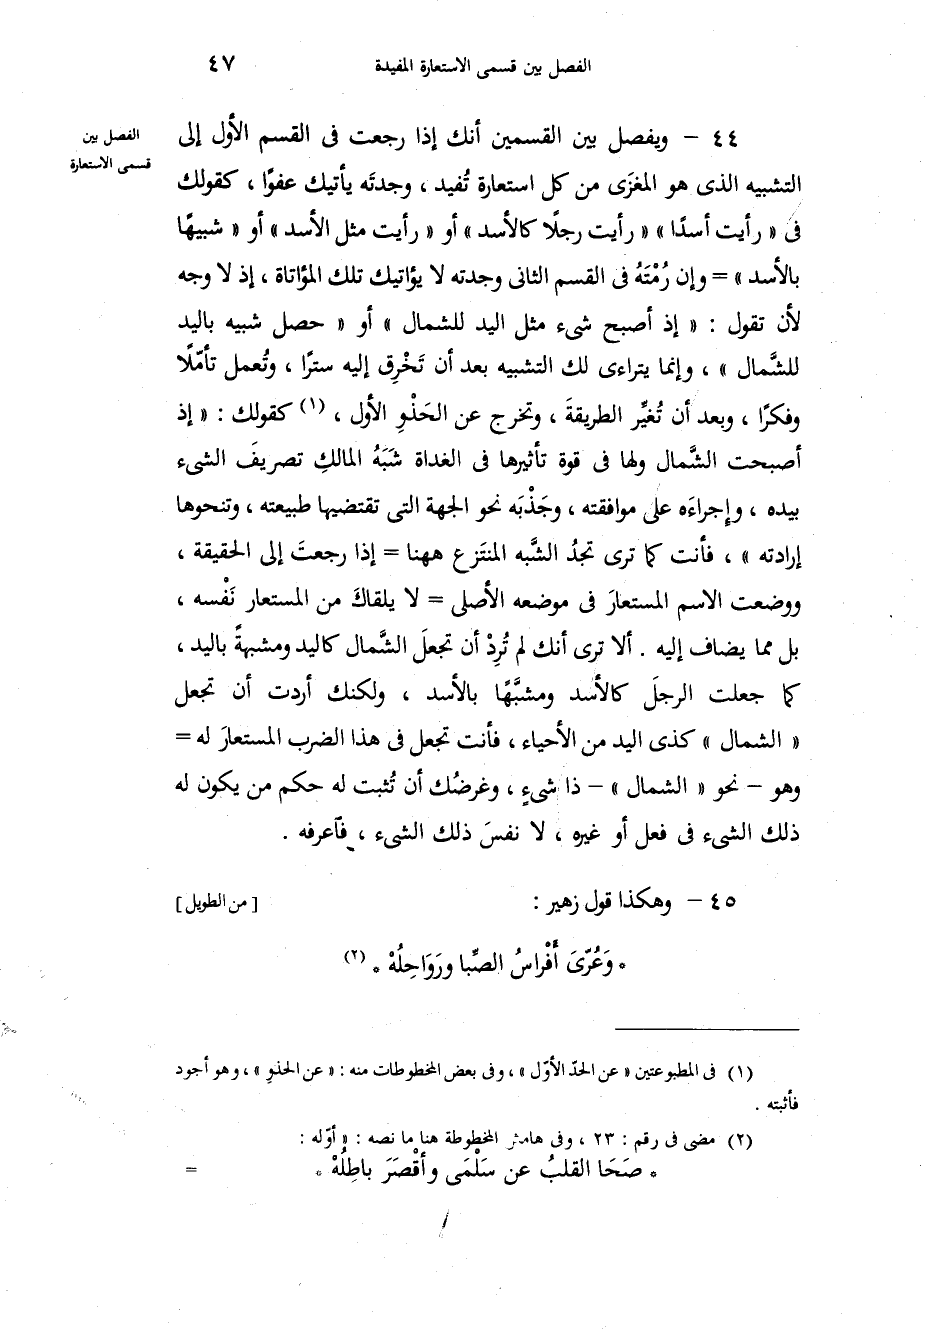 الفصل بين قسمى الاستعارة المفيدة ٤٧
٤٤ – ويفصل بين القسمين أنك إذا رجعت فى القسم الأول إلى
الفصل بين
قسمى الاستعارة
التشبيه الذى هو المغزَى من كل استعارة تُفيد ، وجدتَه يأتيك عفوًا ، كقولك
فى « رأيت أسدًا » « رأيت رجلًا كالأسد » أو « رأيت مثل الأسد » أو « شبيهًا
بالأسد » = وإن رُمْتَهُ فى القسم الثانى وجدته لا يؤاتيك تلك المؤاتاة ، إذ لا وجه
لأن تقول : « إذ أصبح شىء مثل اليد للشمال » أو « حصل شبيه باليد
للشَّمال » ، وإنما يتراءى لك التشبيه بعد أن تَخْرِق إليه سترًا ، وتُعمل تأمّلًا
وفكرًا ، وبعد أن تُغيِّر الطريقةَ ، وتخرج عن الحَذْوِ الأول ، (١) كقولك : « إذ
أصبحت الشَّمال ولها فى قوة تأثيرها فى الغداة شَبَهُ المالكِ تصريفَ الشىء
بيده ، وإجراءَه على موافقته ، وجَذْبَه نحو الجهة التى تقتضيها طبيعته ، وتنحوها
إرادته » ، فأنت كما ترى تجدُ الشَّبه المنتَزع ههنا = إذا رجعتَ إلى الحقيقة ،
ووضعت الاسم المستعارَ فى موضعه الأصلى = لا يلقاكَ من المستعار نَفْسه ،
بل مما يضاف إليه . ألا ترى أنك لم تُرِدْ أن تجعلَ الشَّمال كاليد ومشبهةً باليد ،
كما جعلت الرجلَ كالأسد ومشبَّهًا بالأسد ، ولكنك أردت أن تجعل
« الشمال » كذى اليد من الأحياء ، فأنت تجعل فى هذا الضرب المستعارَ له =
وهو – نحو « الشمال » – ذا شىءٍ ، وغرضُك أن تُثبت له حكم من يكون له
ذلك الشىء فى فعل أو غيره ، لا نفسَ ذلك الشىء ، فآعرفه .
٤٥ – وهكذا قول زهير : [ من الطويل ]
* وَعُرّىَ أَفْراسُ الصِّبا ورَوَاحِلُهْ * (٢)
(١) فى المطبوعتين « عن الحدّ الأوّل » ، وفى بعض المخطوطات منه : « عن الحذو » ، وهو أجود
فأثبته .
(٢) مضى فى رقم : ٢٣ ، وفى هامش المخطوطة هنا ما نصه : « أوّله :
* صَحَا القلبُ عن سَلْمَى وأقْصَرَ باطِلُهْ *
=